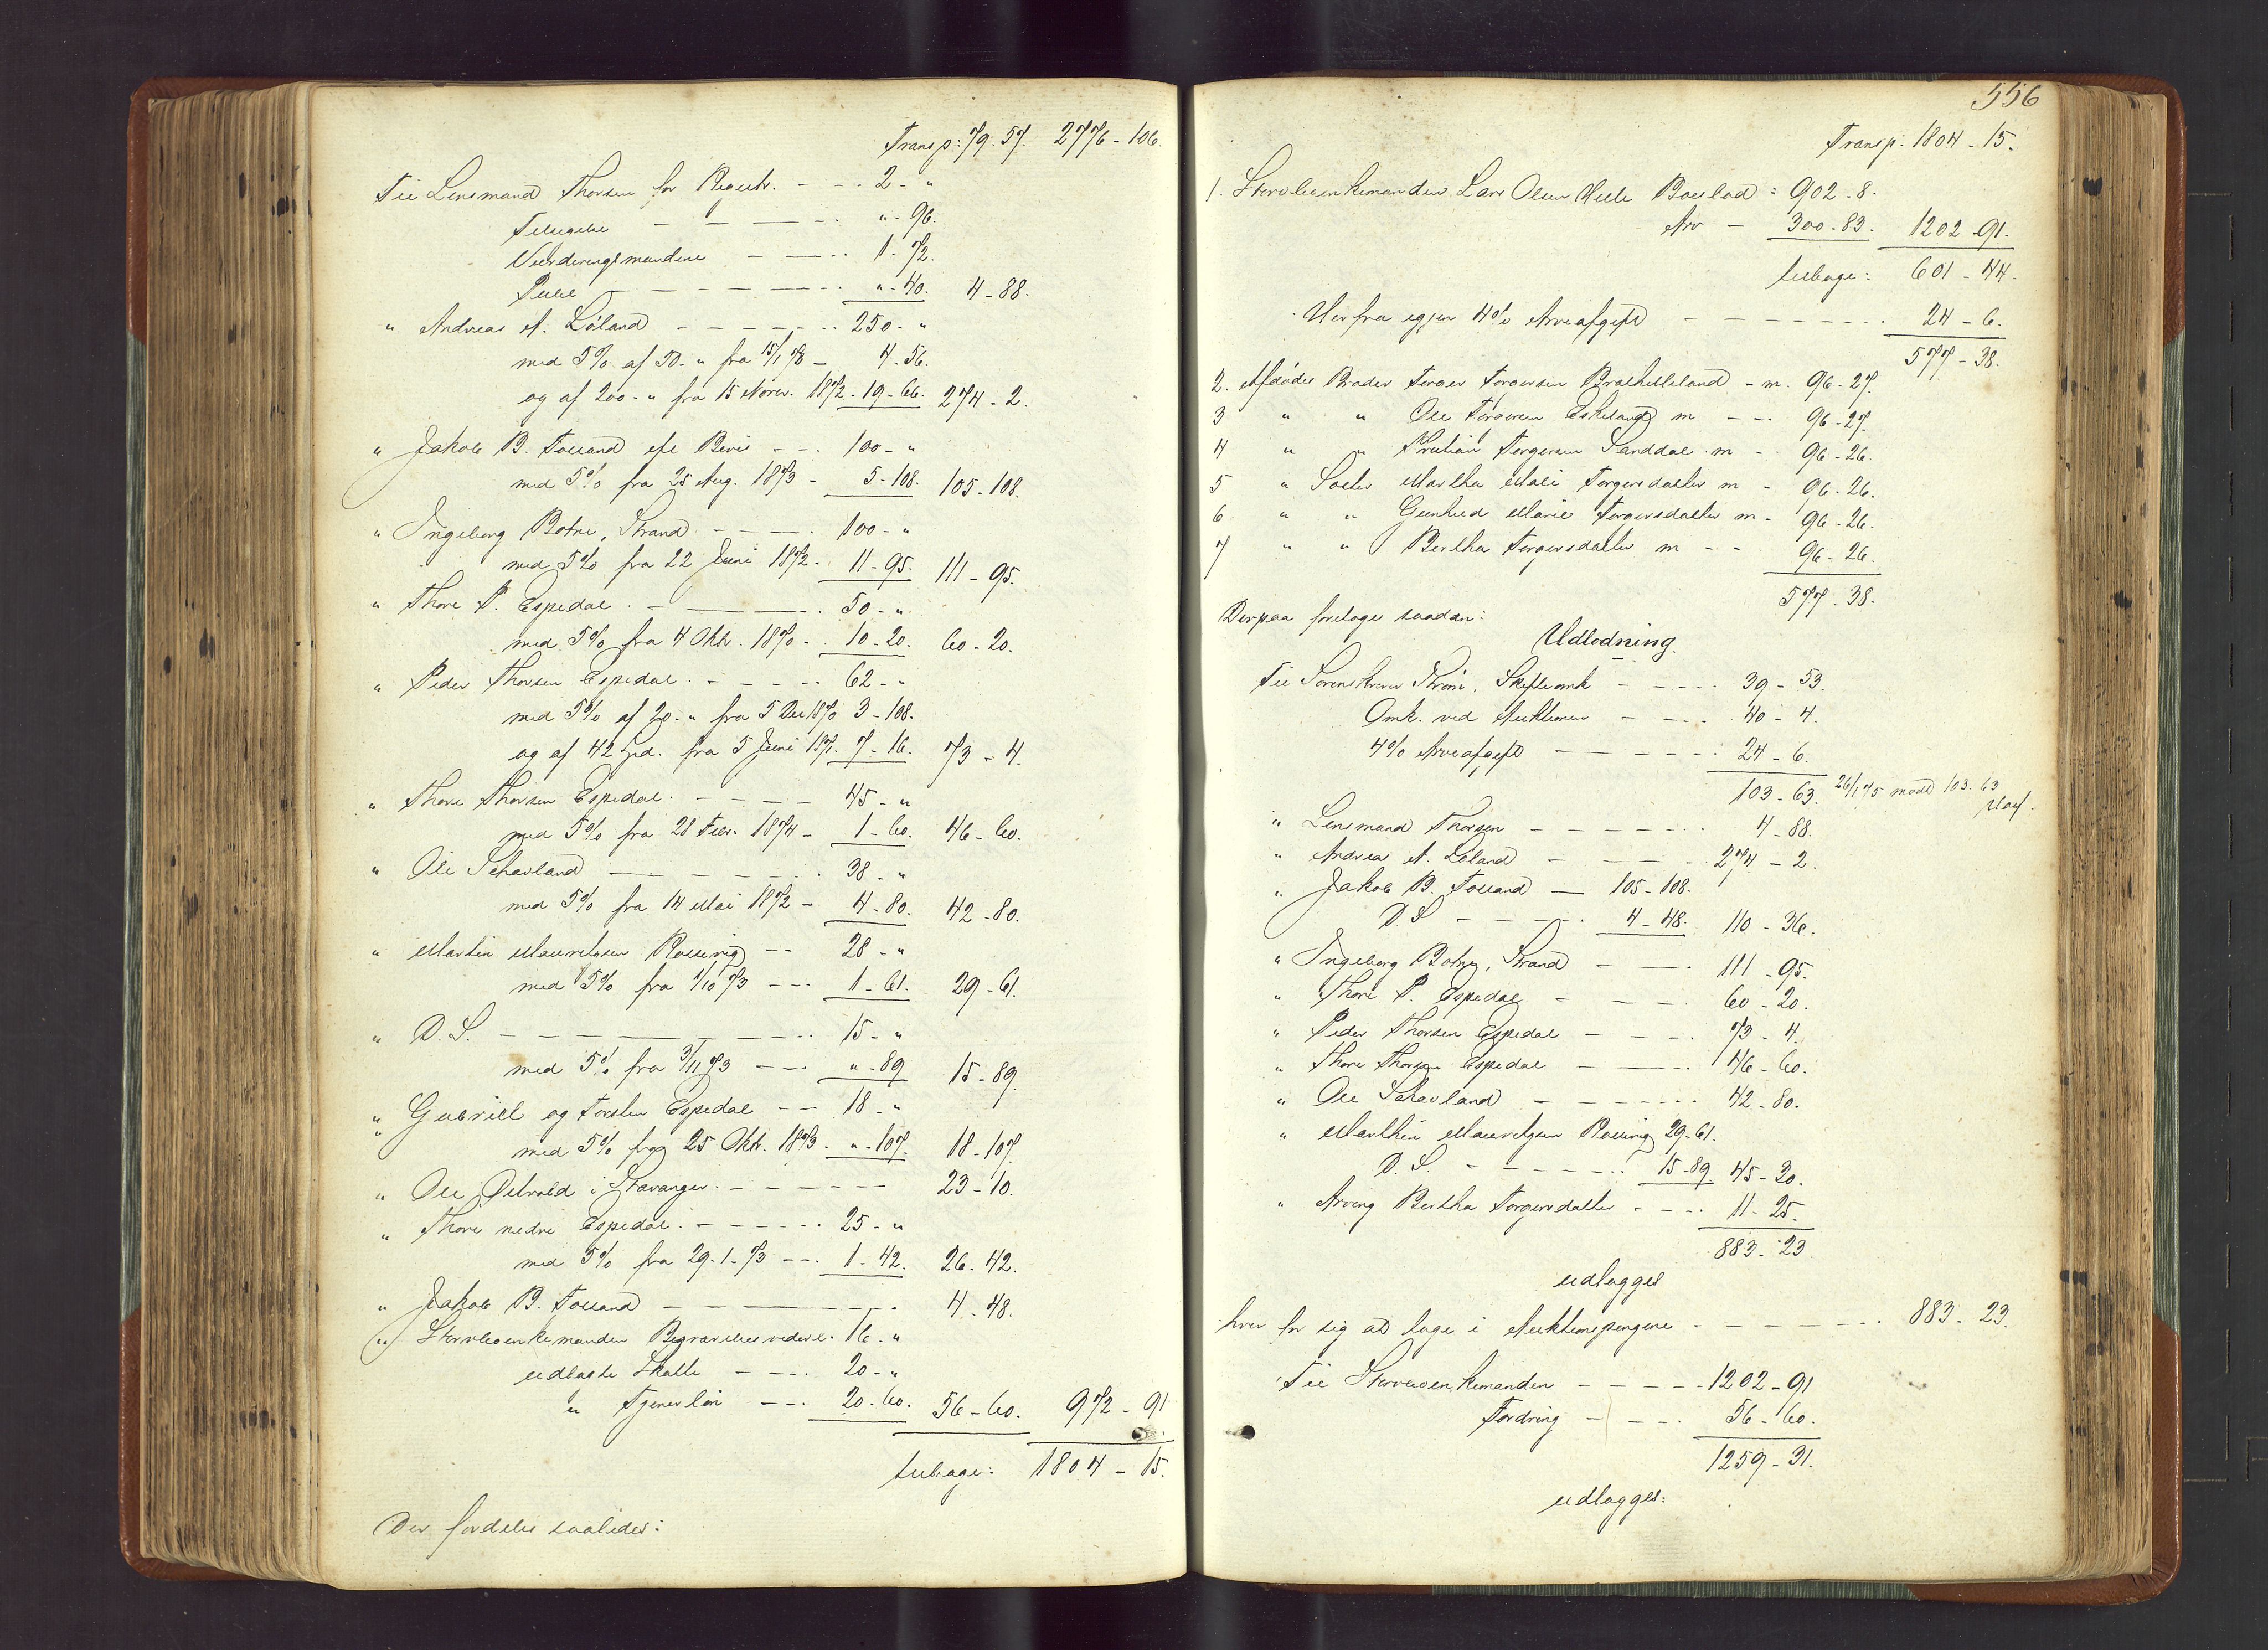 Transp: 79. 57. 2776 - 106.
Til Lensmand Thorsen for Registr. - - - 2 - "
Tilsigelse - - - - - " - 96.
Vurderingsmændene - - - - 1 - 72.
Pillel - - - - - - " - 40. 4 - 88.
" Andreas A. Løland - - - - - - 250 - "
med 5% af 50 - " fra 15/1 73 - 4 - 56.
og af 200 - " fra 15 Novr. 1872 - 19 - 66. 274 - 2.
" Jakob B. Tolland efl Bevis - - - 100 - "
med 5% fra 25 Aug. 1873 - 5 - 108. 105 - 108.
" Ingeborg Botne, Strand - - - - 100 - "
med 5% fra 22 Juni 1872 - 11 - 95. 111 - 95.
" Thore P. Espedal - - - - - 50 - "
med 5% fra 4 Oktr. 1870 - 10 - 20. 60 - 20.
" Peder Thorsen Espedal - - - - - 62 - "
med 5% af 20 - " fra 5 Dec 1870 3 - 108.
og af 42 Spd. fra 5 Juni 1871. 7 - 16. 73 - 4.
" Thore Thorsen Espedal - - - - 45 - "
med 5% fra 28 Febr. 1874 - 1 - 60. 46 - 60.
" Ole Schavland - - - - - - 38 - "
med 5% fra 14 Mai 1872 - 4 - 80. 42 - 80.
" Martin Mauritzen Rossevig - - 28 - "
med 5% fra 1/10 73 - - - 1 - 61. 29 - 61.
" D. S. - - - - - - - - 15 - "
med 5% fra 3/11 73 - - - " - 89 15 - 89.
" Gabriel og Torsten Espedal - - - 18 - "
med 5% fra 25 Oktr. 1873. " - 107. 18 - 107.
" Ole Østvold i Stavanger - - - - - - 23 - 10.
" Thore nedre Espedal - - - - - 25 - "
med 5% fra 29 - 1 - 73 - - - 1 - 42. 26 - 42.
" Jakob B. Tolland - - - - - - - 4 - 48.
" Stervboenkemanden Begravelses 16 - "
udlagte Skatte - - - - 20 - "
" Tjenerløn - - - 20 - 60. 56 - 60. 972 - 91
tilbage: 1804 - 15.
Der fordeles saaledes:
556
Transp: 1804 - 15.
1. Stervboenkemanden Lars Olsen Helle Boeslod: 902 - 8.
Arv - 300 - 83. 1202 - 91.
tilbage: 601 - 44.
Herfra igjen 4% Arveafgift - - - - - - - 24 - 6.
577 - 38.
2. Afdødes Broder Torger Torgersen - m. 96 - 27.
3 " " Ole Torgersen Eskeland m - - - 96 - 27.
4 " " Kristian Torgersen Sanddal m - - 96 - 26.
5 " Søster Martha Mali Torgersdatter m - 96 - 26.
6 " " Gunhild Marie Torgersdatter m - 96 - 26.
7 " " Bertha Torgersdatter m - - 96 - 26.
577 - 38.
Derpaa foretoges saadan:
Udlodning.
Til Sorenskriver Strøm, Skifteomk - - - - - 39 - 53.
Omk. ved Auktionen - - - - 40 - 4.
4% Arveafgift - - - - - - 24 - 6.
103 - 63. 26/1 75 modt 103. 63
" Lensmand Thorsen - - - - - - 4 - 88.
" Andreas A. Løland - - - - - 274 - 2.
" Jakob B. Tolland - 105 - 108.
D. S - - - - 4 - 48. 110 - 36.
" Ingeborg Botne, Strand - - - - 111 - 95.
" Thore P. Espedal - - - - - 60 - 20.
" Peder Thorsen Espedal - - - - 73 - 4.
" Thore Thorsen Espedal - - - - 46 - 60.
" Ole Schavland - - - - - - 42 - 80.
" Marthin Mauritzen Rossevig 29 - 61.
D. S. - - - - - - 15 - 89. 45 - 30.
" Arving Bertha Torgersdatter - - - - 11 - 25.
883 - 23.
udlægges
hver for sig at tage i Auktionspengene - - - - - - 883 - 23.
Til Stervboenkemanden - - - - - 1202 - 91
Fordring - - - - 56 - 60.
1259 - 31.
udlægges: